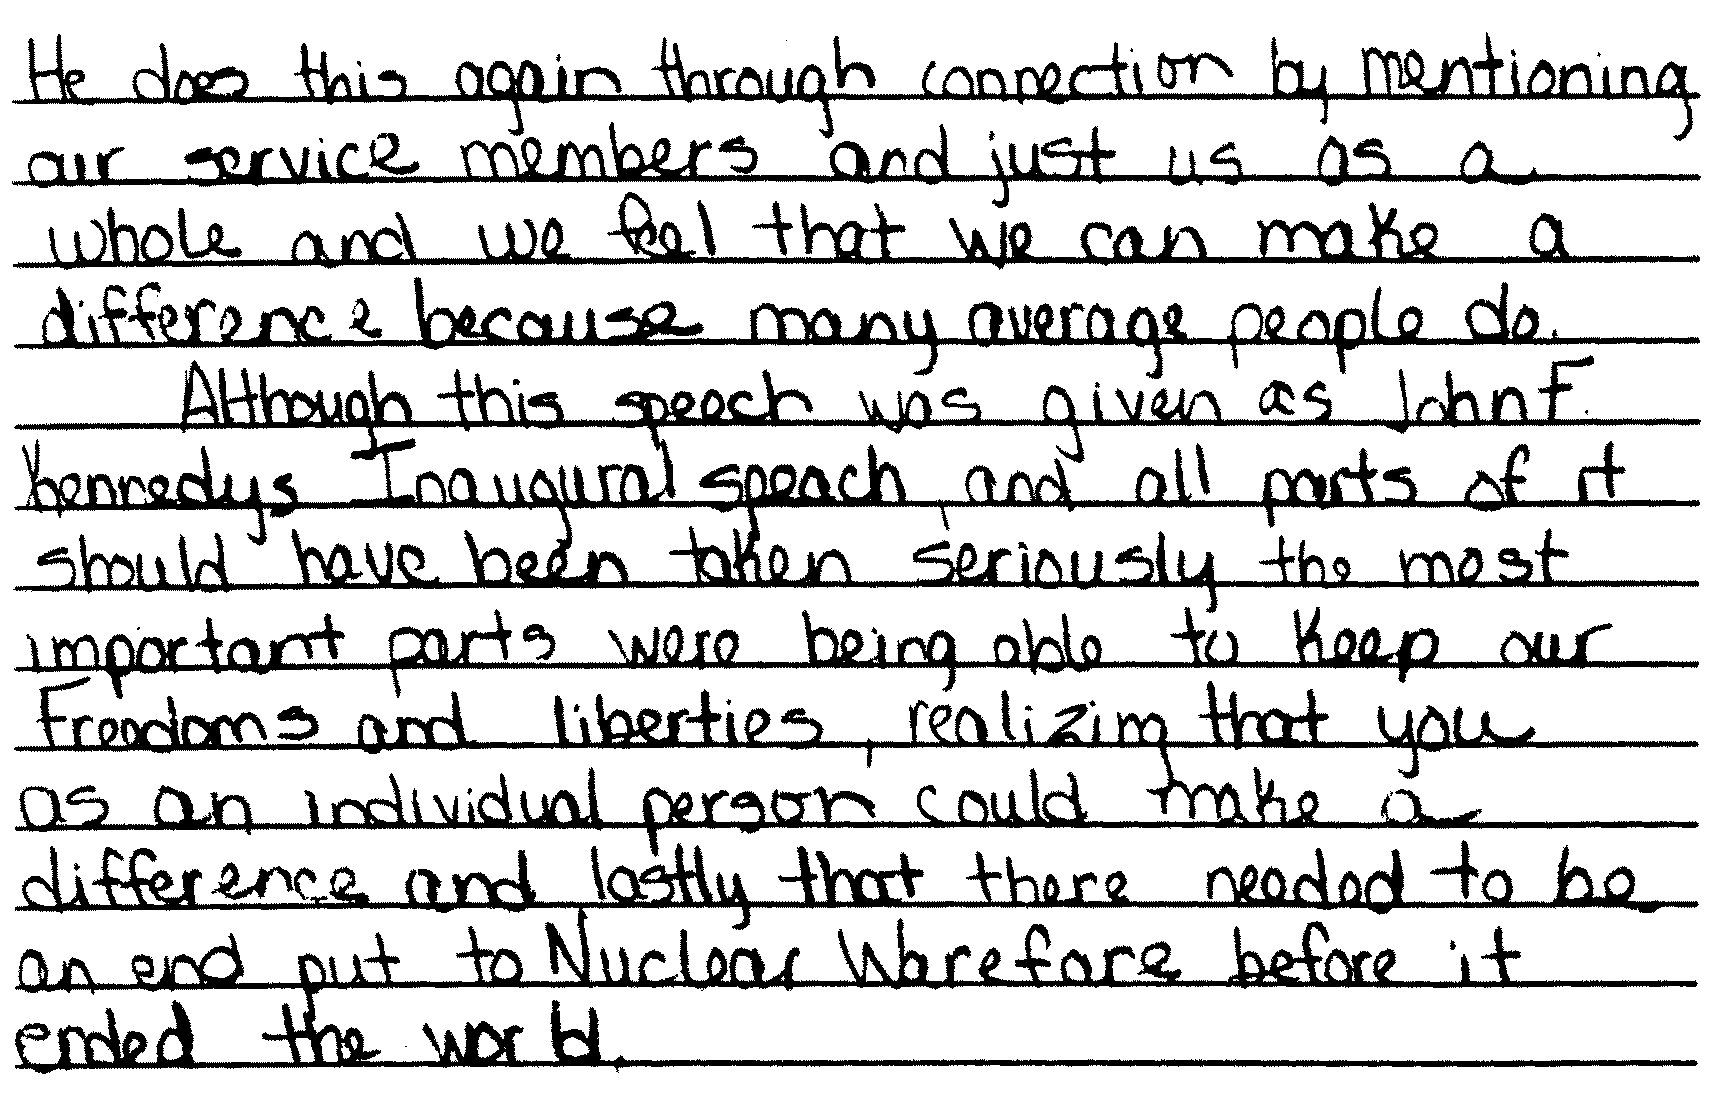 He does this again through connection by mentioning
our service members and just us as a
whole and we feel that we can make a
difference because many average people do.
Although this speech was given as John F.
Kennedys Inaugural speach and all parts of it
should have been taken seriously the most
important parts were being able to keep our
Freedoms and liberties, realizing that you
as an individual person could make a
difference and lastly that there needed to be
an end put to Nuclear Warefare before it
ended the world.